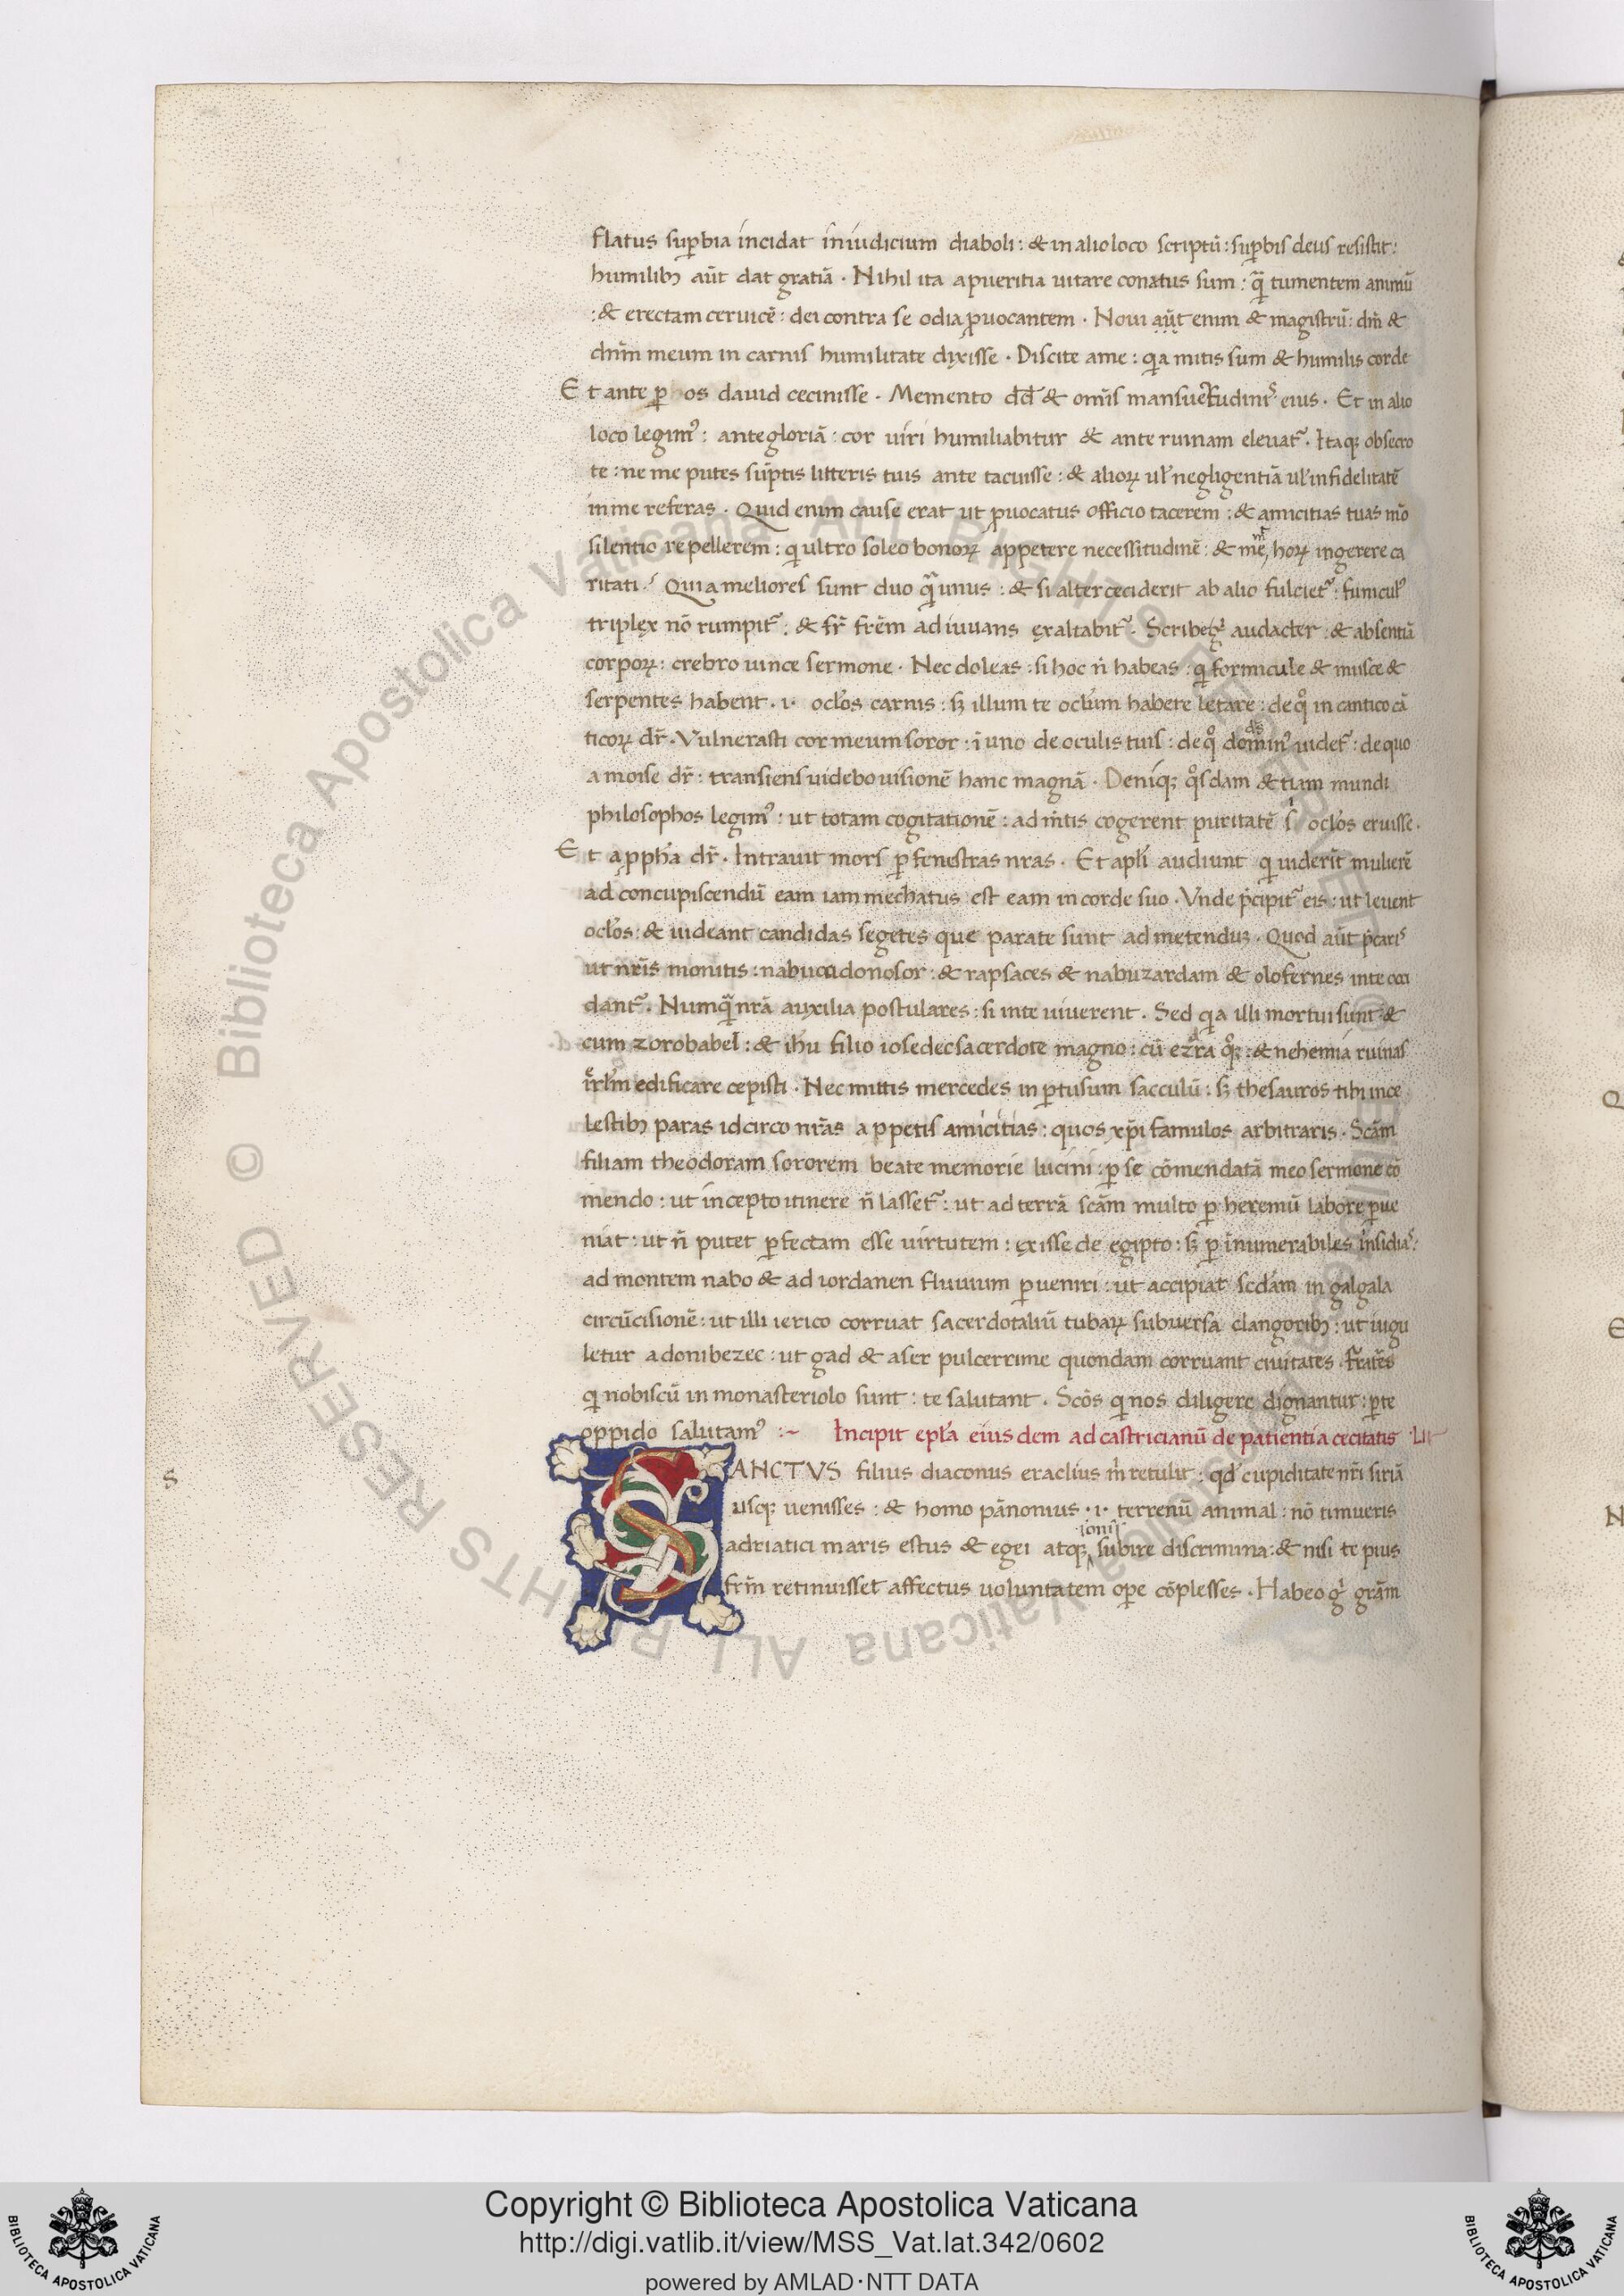 flatus supbia incidat in iudicium diaboli : & in alio loco scriptū : supbis deus resistit :
humilibꝫ aūt dat gratiā . Nihil ita a pueritia uitare conatus sum : q̄ tumentem animū
: & erectam ceruicē : dei contra se odia ꝓuocantem . Noui aūt enim & magistrū : dm̄ &
dnm̄ meum in carnis humilitate dixisse . Discite a me : qa mitis sum & humilis corde
Et ante ꝑ os dauid cecinisse . Memento dd̄ & omīs mansuetudinis eius . Et in alio
loco legimꝰ : ante gloriā : cor uiri humiliabitur & ante ruinam eleuat᷑ . Itaqꝫ obsecro
te : ne me putes sūptis litteris tuis ante tacuisse : & alioꝝ ul̄ negligentiā ul̄ infidelitatē
in me referas . Quid enim cause erat ut ꝓuocatus officio tacerem : & amicitias tuas mō
silentio repellerem : q ultro soleo bonoꝝ appetere necessitudinē : & me horꝝ ingerere ca
ritati ? Quia meliores sunt duo q̄ unus : & si alter ceciderit ab alio fulciet᷑ : funiculꝰ
triplex nō rumpit᷑ : & fr̄ frēm adiuuans exaltabit᷑ . Scribe gͥ audacter : & absentiū
corpoꝝ : crebro uince sermone . Nec doleas : si hoc n̄ habeas : q formicule & musce &
serpentes habent . i . ocl̄os carnis : sꝫ illum te ocl̄um habere letare : de qͦ in cantico cā
ticoꝝ dr̄ . Vulnerasti cor meum soror : ī uno de oculis tuis : de qͦ dominꝰ uidet᷑ : de quo
a moise dr̄ : transiens uidebo uisionē hanc magnā . Deniqꝫ qͦsdam etiam mundi
philosophos legimꝰ : ut totam cogitationē : ad m̄tis cogerent puritatē ocl̄os eruisse .
Et a ꝓpħa dr̄ . Intrauit mors ꝑ fenestras nras . Et apl̄i audiunt q uiderit mulierē
ad concupiscendū eam iam mechatus est eam in corde suo . Vnde p̄cipit᷑ eis : ut leuent
ocl̄os : & uideant candidas segetes que parate sunt ad metenduꝫ . Quod aūt p̄caris
ut nr̄is monitis : nabuccodonosor : & rapsaces & nabuzardam & olofernes in te occi
dant᷑ . Numq̄ nrā auxilia postulares : si in te uiuerent . Sed qa illi mortui sunt &
cum zorobabel : & ihu filio iosedec sacerdote magno : cū ezra qͦqꝫ : & nehemia ruinas
ir̄lm edificare cepisti . Nec mittis mercedes in ꝑtusum sacculū : sꝫ thesauros tibi in ce
lestibꝫ paras idcirco nr̄as appetis amicitias : quos xp̄i famulos arbitraris . Scām
filiam theodoram sororem beate memorie lucini : ꝑ se cōmendatā meo sermone cō
mendo : ut in cepto itinere n̄ lasset᷑ : ut ad terrā scām multo ꝑ heremū labore ꝑue
niat : ut n̄ putet ꝑfectam esse uirtutem : exisse de egipto : sꝫ ꝑ īnumerabiles insidias :
ad montem nabo & ad iordanen fluuium ꝑueniri : ut accipiat scd̄am in galgala
circūcisionē : ut illi ierico corruat sacerdotaliū tubaꝝ subuersa clangoribꝫ : ut iugu
letur adonibezec : ut gad & aser pulcerrime quondam corruant ciuitates . Fratr̄es
q nobiscū in monasteriolo sunt : te salutant . Scōs q nos diligere dignantur : ꝑ te
oppido salutamꝰ :~ Incipit epl̄a eiusdem ad castricianū de patientia cecitatis . LII
SANCTVS filius diaconus eraclius m̄ retulit : qd cupiditate nr̄i siriā
usqꝫ uenisses : & homo pānonius . i . terrenū animal : nō timueris
ionii
adriatici maris estus & egei atqꝫ subire discrimina : & nisi te pius
frm̄ retinuisset affectus uoluntatem oꝑe cōplesses . Habeo gͥ grām
S
Copyright © Biblioteca Apostolica Vaticana
http://digi.vatlib.it/view/MSS_Vat.lat.342/0602
powered by AMLAD·NTT DATA
BIBLIOTECA APOSTOLICA VATICANA
BIBLIOTECA APOSTOLICA VATICANA
© Biblioteca Apostolica Vaticana ALL RIGHTS RESERVED